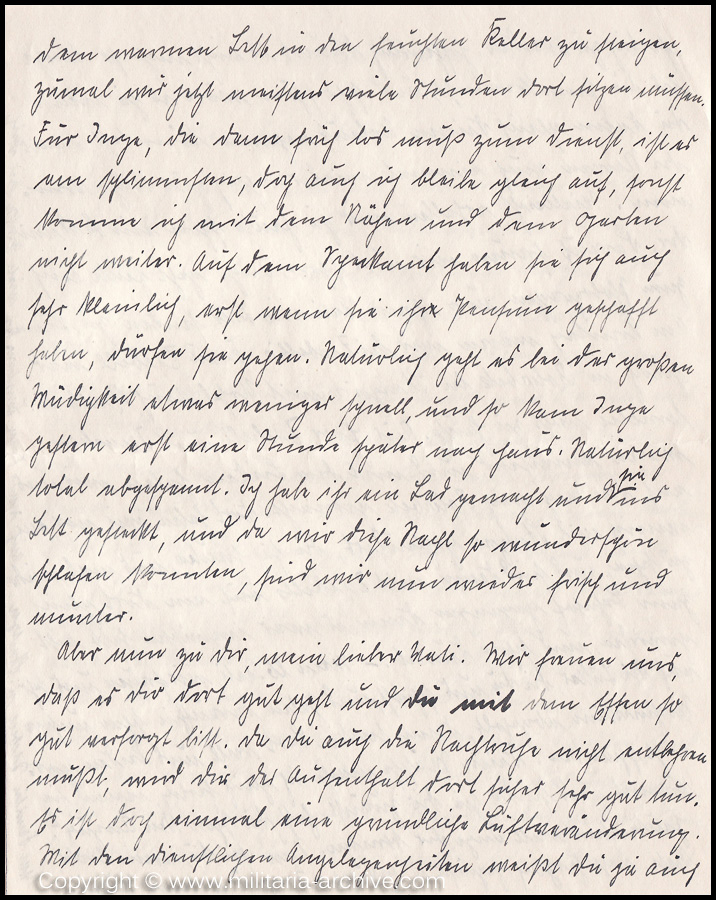 dem warmen Bett in den feuchten Keller zu steigen,
zumal wir jetzt meistens viele Stunden dort sitzen müssen.
Für Inge, die dann früh los muß zum Dienst, ist es
am schlimmsten, doch auch ich bleibe gleich auf, sonst
komme ich mit dem Nähen und dem Garten
nicht weiter. Auf dem Speckamt haben sie sich auch
sehr kleinlich, erst wenn sie ihre Pensum geschafft
haben, dürfen sie gehen. Natürlich geht es bei der großen
Müdigkeit etwas weniger schnell, und so kam Inge
gestern erst eine Stunde später nach Haus. Natürlich
total abgespannt. Ich habe ihr ein Bad gemacht und sie ins
Bett gesteckt, und da wir diese Nacht so wunderschön
schlafen konnten, sind wir nun wieder frisch und
munter.
Aber nun zu Dir, mein lieber Vati. Wir freuen uns,
daß es Dir dort gut geht und du mit dem Essen so
gut versorgt bist. Da du auch die Nachtruhe nicht entbehren
mußt, wird dir der Aufenthalt dort sicher sehr gut tun.
Es ist doch einmal eine gründliche Luftveränderung.
Mit den dienstlichen Angelegenheiten weißt du ja auch
Copyright © www.militaria-archive.com